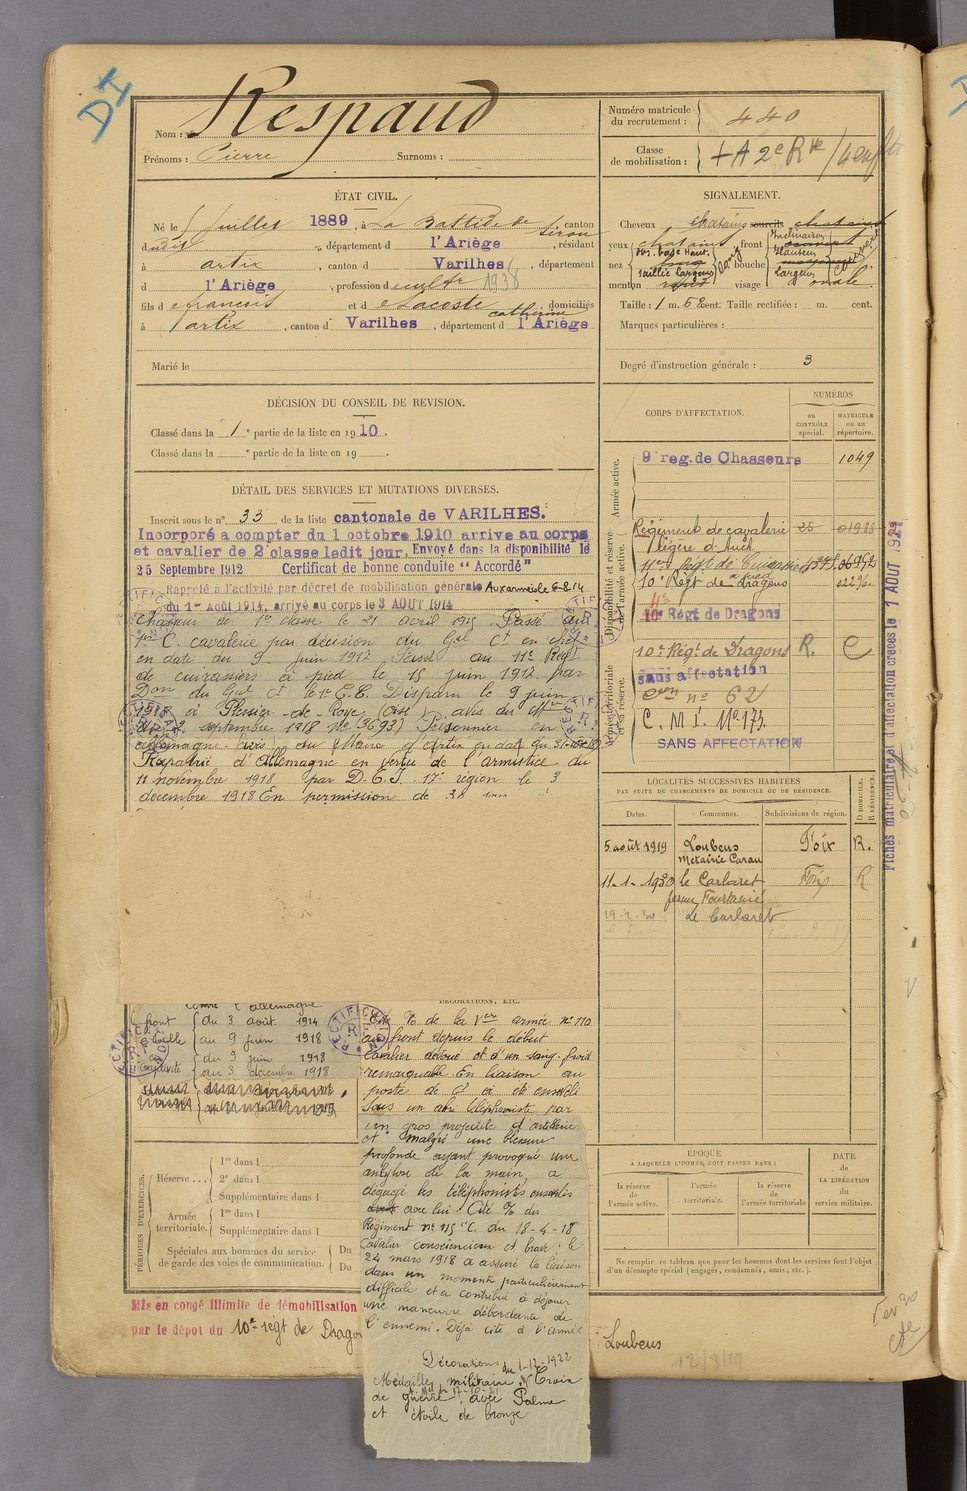 DI
Nom : Respaud
Prénoms : Pierre Surnoms :
Numéro matricule du recrutement : 440
Classe de mobilisation : + A 2e Rve / 4 enfts
ÉTAT CIVIL.
Né le 5 juillet 1889, à La Bastide de Sérou, canton
dudit, département d l'Ariège, résidant
à artix, canton d Varilhes, département
d l'Ariège, profession d cultr 1938
fils d e françois et d e Lacoste Catherine, domiciliés
à artix, canton d Varilhes, département d l'Ariège
Marié le
SIGNALEMENT.
Cheveux chatains sourcils chatains
yeux chatains front Inclinaison
nez Dos. base Haut. bouche Hauteur
saillie Largeur Largeur
menton visage ovale
Taille : 1 m. 62 cent. Taille rectifiée : m. cent.
Marques particulières :
Degré d'instruction générale : 3
DÉCISION DU CONSEIL DE REVISION.
Classé dans la 1e partie de la liste en 1910.
Classé dans la e partie de la liste en 19 .
DÉTAIL DES SERVICES ET MUTATIONS DIVERSES.
Inscrit sous le n° 33 de la liste cantonale de VARILHES.
Incorporé à compter du 1 octobre 1910 arrive au corps
et cavalier de 2e classe ledit jour. Envoyé dans la disponibilité le
25 Septembre 1912 Certificat de bonne conduite "Accordé"
Rappelé à l'activité par décret de mobilisation générale Aux armées le 6-8-14
du 1er Août 1914, arrivé au corps le 3 AOUT 1914
Chasseur de 1re classe le 21 avril 1915 Passé au
1er C. cavalerie par décision du Gal Ct en chef
en date du 9 juin 1917 Passé au 11e Régt
de cuirassiers à pied le 15 juin 1917 par
Don du Gal Ct le 1er C.C. Disparu le 9 juin
1918 à Plessier de Roye (Oise) avis du
2 septembre 1918 Ne (3693) Prisonnier en
allemagne. avis du Maire d'Artix en dat du
Rapatrié d'Allemagne en vertu de l'armistice du
11 novembre 1918 par D.E.I. 17e région le 3
décembre 1918 En permission de 30
CORPS D'AFFECTATION.
NUMÉROS
au CONTRÔLE spécial.
MATRICULE ou au répertoire.
Armée active.
9e reg. de Chasseurs 1049
Disponibilité et réserve de l'armée active.
Régiment de cavalerie 25 01988
légère d'Auch
11e Régt de Cuirassiers à pied
10e Régt de dragons 02296
10e Régt de Dragons
Armée territoriale et sa réserve.
10e Régt de Dragons R. C
sans affectation
Cen n° 62
C. M I. N° 173.
SANS AFFECTATION
LOCALITÉS SUCCESSIVES HABITÉES
PAR SUITE DE CHANGEMENTS DE DOMICILE OU DE RÉSIDENCE.
Dates. Communes. Subdivisions de région. D DOMICILE. R RÉSIDENCE.
5 août 1919 Loubens Foix R.
Metairie Carau
11-1-1930 le Carlaret Foix R
ferme Fourtanié
19-2-30 Le Carlaret
Fiches matriculaire et d'affectation créées le 1 AOUT 1929
contre l'allemagne
front { du 3 août 1914
au 9 juin 1918
Captivité { du 9 juin 1918
au 3 décembre 1918
RECTIFICATION
R.F
DÉCORATIONS, ETC.
Cité % de la Vère armée n° 110
au front depuis le début
Cavalier dévoué et d'un sang-froid
remarquable. En liaison au
poste de Ct a été enseveli
sous un abri téléphoniste par
un gros projectile d'artillerie
et malgré une blessure
profonde ayant provoqué une
ankylose de la main, a
dégagé les téléphonistes ensevelis
avec lui. Cité % du
Régiment n° 115 "C. du 18-4-18
Cavalier consciencieux et brave : le
24 mars 1918 a assuré la liaison
dans un moment particulièrement
difficile et a contribué à déjouer
une manœuvre débordante de
l'ennemi. Déjà cité à l'armée
Décorations
Médaille militaire du 1-12-1922 Croix
de guerre avec Palme
et étoile de bronze
PÉRIODES D'EXERCICES.
Réserve.... { 1re dans l
2e dans l
Supplémentaire dans l
Armée territoriale. { 1re dans l
Supplémentaire dans l
Spéciales aux hommes du service de garde des voies de communication. { Du
Du
EPOQUE
À LAQUELLE L'HOMME DOIT PASSER DANS :
la réserve de l'armée active.
l'armée territoriale.
la réserve de l'armée territoriale
DATE de LA LIBÉRATION du service militaire.
Ne remplir ce tableau que pour les hommes dont les services font l'objet
d'un décompte spécial (engagés, condamnés, omis, etc.).
Mis en congé illimité de démobilisation
par le dépôt du 10e régt de Drago
: Loubens
12/8/19